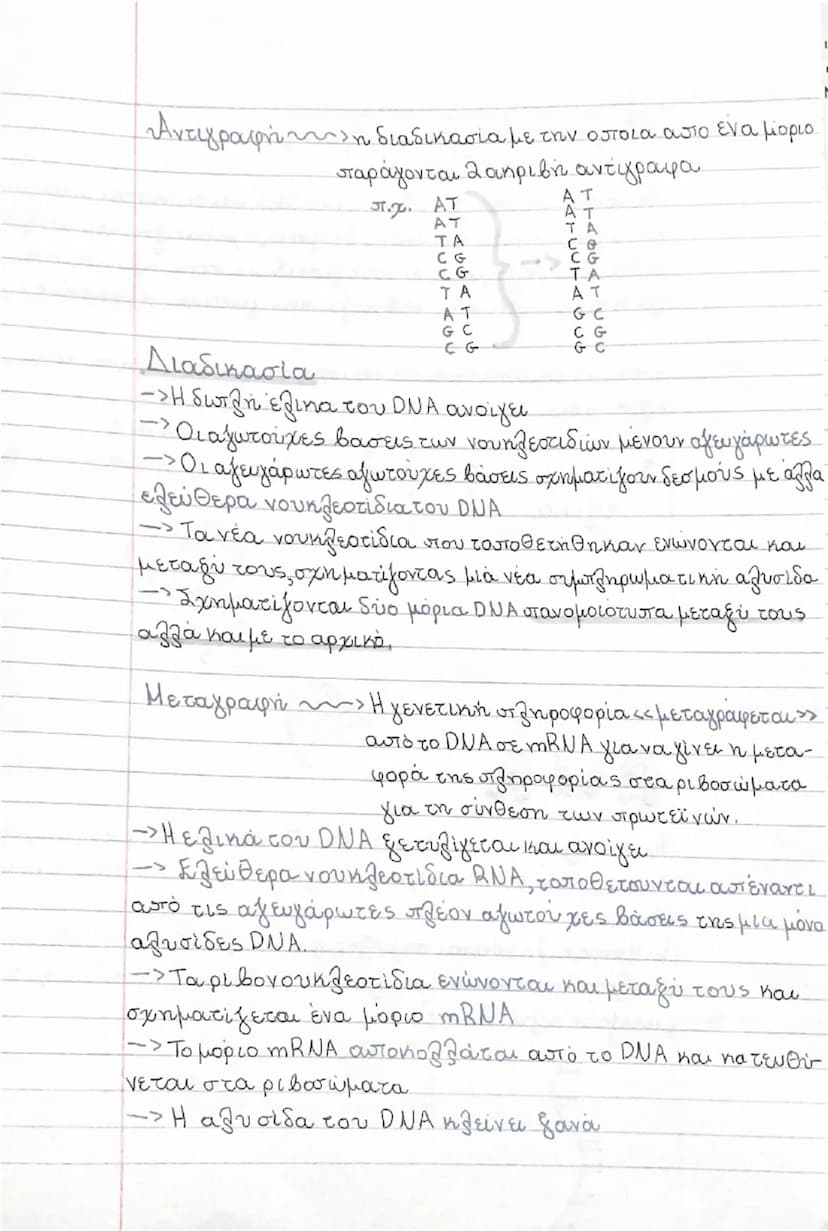 Αντιγραφή ~~~> η διαδικασία με την οποια απο ένα μόριο
παράγονται 2 ακριβή αντίγραφα
π.χ. AT
AT
TA
CG
CG
TA
AT
GC
CG
-->
AT
AT
TA
CG
CG
TA
AT
GC
CG
GC
Διαδικασία
-> Η διπλή έλικα του DNA ανοίγει
-> Οι αζωτούχες βασεις των νουκλεοτιδιών μένουν αζευγάρωτες
-> Οι αζευγάρωτες αζωτούχες βάσεις σχηματίζουν δεσμούς με άλλα
ελεύθερα νουκλεοτίδια του DNA
-> Τα νέα νουκλεοτίδια που τοποθετήθηκαν ενώνονται και
μεταξύ τους, σχηματίζοντας μιά νέα συμπληρωματική αλυσίδα
-> Σχηματίζονται δύο μόρια DNA πανομοιότυπα μεταξύ τους
αλλά και με το αρχικό.
Μεταγραφή ~~~> Η γενετική πληροφορία <<μεταγράφεται>>
από το DNA σε mRNA για να γίνει η μετα-
φορά της πληροφορίας στα ριβοσώματα
για τη σύνθεση των πρωτεϊνών.
-> Η ελικά του DNA ξετυλίγεται και ανοίγει
-> Ελεύθερα νουκλεοτίδια RNA, τοποθετουνται απέναντι
από τις αζευγάρωτες πλέον αζωτούχες βάσεις της μια μόνο
αλυσίδες DNA.
-> Τα ριβονουκλεοτίδια ενώνονται και μεταξύ τους και
σχηματίζεται ένα μόριο mRNA
-> Το μόριο mRNA αποκολλάται από το DNA και κατευθύ-
νεται στα ριβοσώματα
-> Η αλυσίδα του DNA κλείνει ξανά